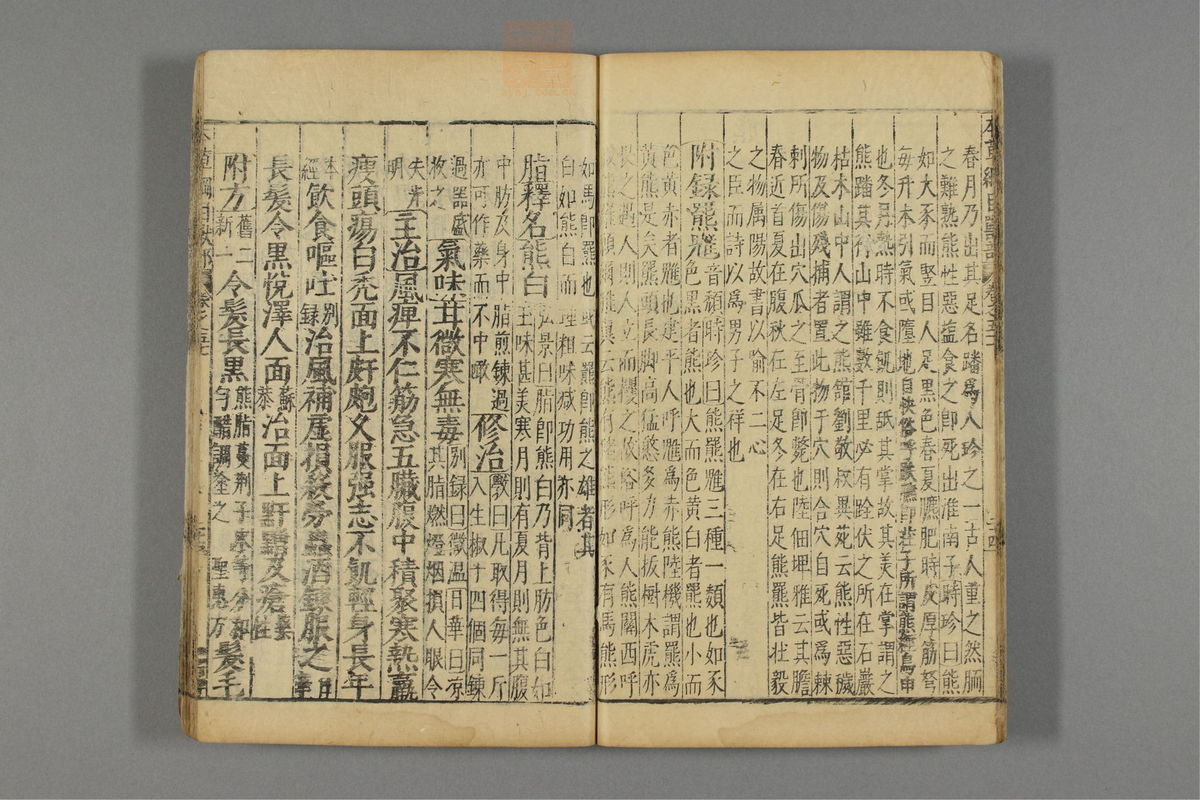 春月乃出其足名蹯為八珍之一古人重之然胹
之難熟熊性惡鹽食之卽死出淮南子時珍曰熊
如大豕而竪目人足黑色春夏膘肥時皮厚筋弩
每升木引氣或墮地自快俗呼跌膘卽莊子所謂熊經鳥申
也冬月蟄時不食飢則舐其掌故其美在掌謂之
熊蹯其行山中雖數千里必有跧伏之所在石巖
枯木山中人謂之熊館劉敬叔異苑云熊性惡穢
物及傷殘捕者置此物于穴則合穴自死或為棘
刺所傷出穴爪之至骨卽斃也陸佃埤雅云其膽
春近首夏在腹秋在左足冬在右足熊羆皆壯毅
之物屬陽故書以喻不二心
之臣而詩以為男子之祥也
附録羆魋音頹時珍曰熊羆魋三種一類也如豕
色黑者熊也大而色黄白者羆也小而
色黄赤者魋也建平人呼魋為赤熊陸機謂羆為
黄熊是矣羆頭長脚高猛憨多力能拔樹木虎亦
畏之遇人則人立而攫之故俗呼為人熊關西呼
豭熊羅願爾雅翼云熊有猪熊形如豕有馬熊形
如馬卽羆也或云羆卽熊之雄者其
白如熊白而理粗味減功用亦同
脂釋名熊白弘景曰脂卽熊白乃背上肪色白如
玉味甚美寒月則有夏月則無其腹
中肪及身中脂煎錬過
亦可作藥而不中噉
修治斆曰凡取得每一斤
入生椒十四個同錬
過器盛
收之
氣味甘微寒無毒别録曰微温日華曰凉
其脂燃燈烟損人眼令
失光
明
主治風痺不仁筋急五臟腹中積聚寒熱羸
瘦頭瘍白秃面上皯皰久服强志不飢輕身長年
本
經
飲食嘔吐别
録
治風補虛損殺勞蟲酒錬服之日
華
長髮令黑悅澤人面蘇
恭
治面上䵟䵳及瘡藥
性
附方舊二
新一
令髮長黑熊脂蔓荆子末等分和
勻醋調塗之 聖惠方
髮毛